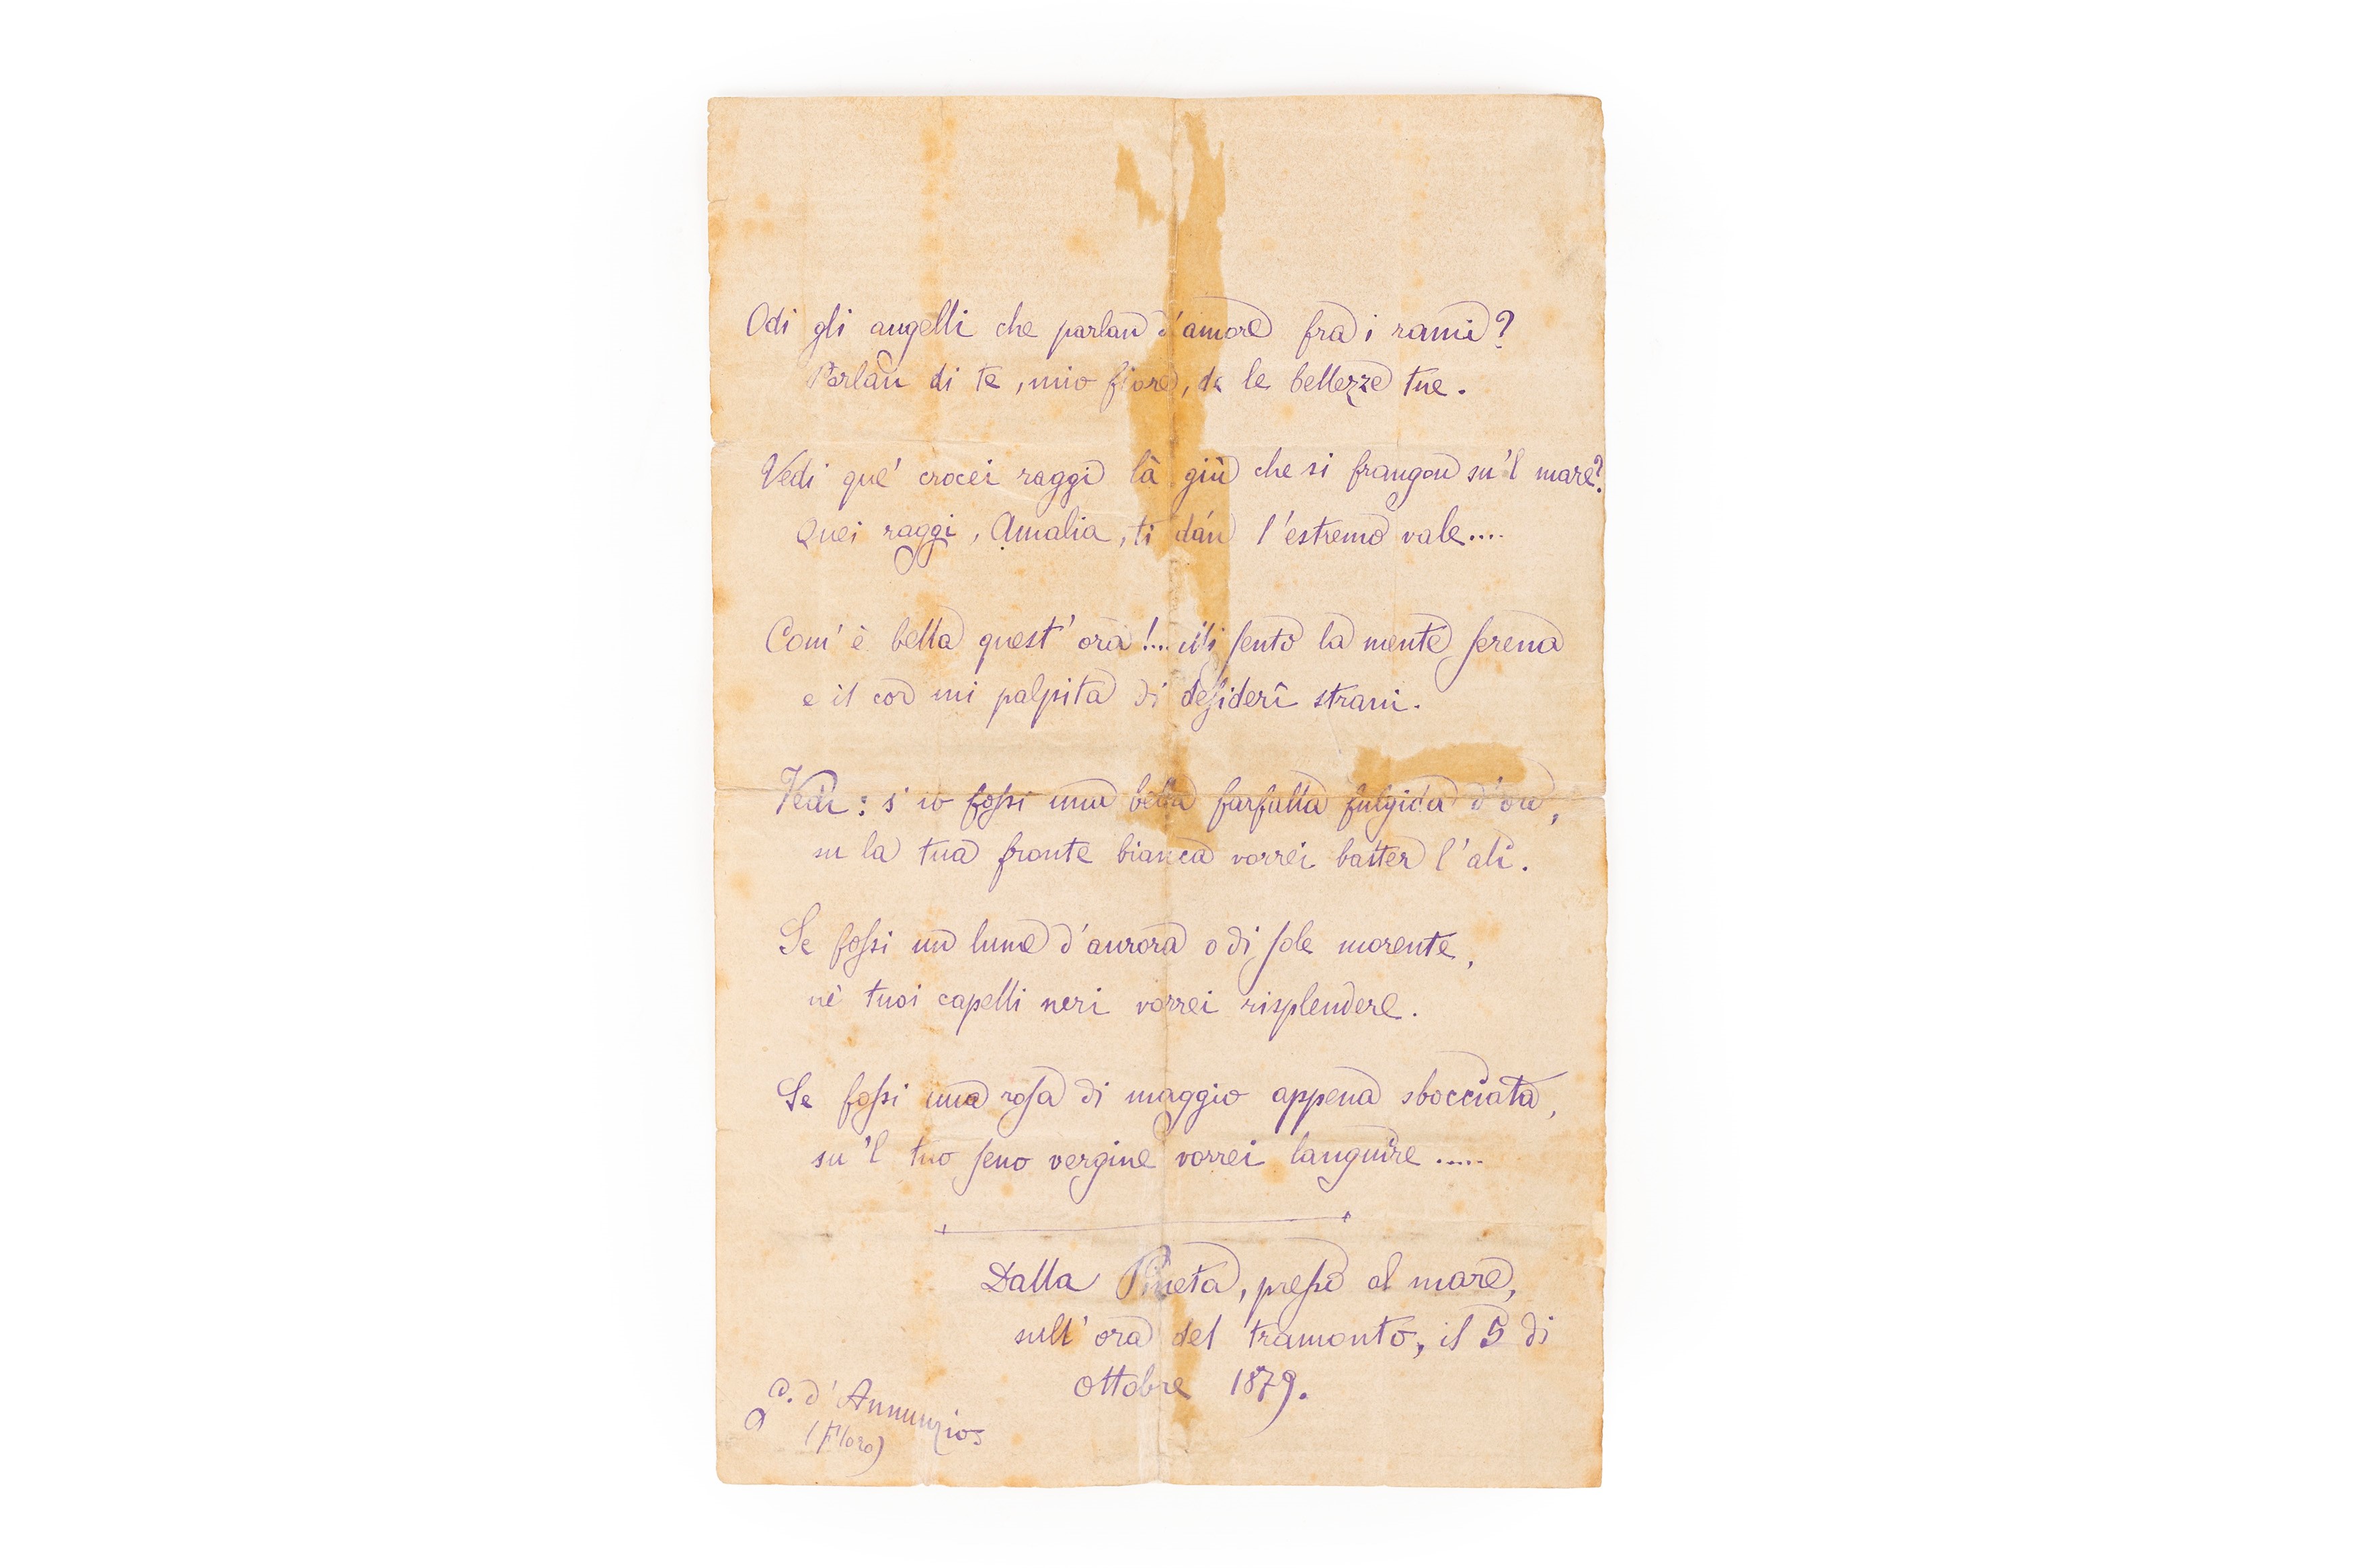 Odi gli augelli che parlan d'amore fra i rami?
Parlan di te, mio fiore, de le bellezze tue.
Vedi que' crocei raggi là giù che si frangon su 'l mare?
Quei raggi, Amalia, ti dán l'estremo vale....
Com' è bella quest' ora!... Mi sento la mente serena
e il cor mi palpita di desiderî strani.
Vedi: s' io fossi una bella farfalla fulgida d'oro,
su la tua fronte bianca vorrei batter l'ali.
Se fossi un lume d'aurora o di sole morente,
nè tuoi capelli neri vorrei risplendere.
Se fossi una rosa di maggio appena sbocciata,
su 'l tuo seno vergine vorrei languire.....
Dalla Pineta, presso al mare,
sull' ora del tramonto, il 5 di
ottobre 1879.
G. d'Annunzio
(Floro)